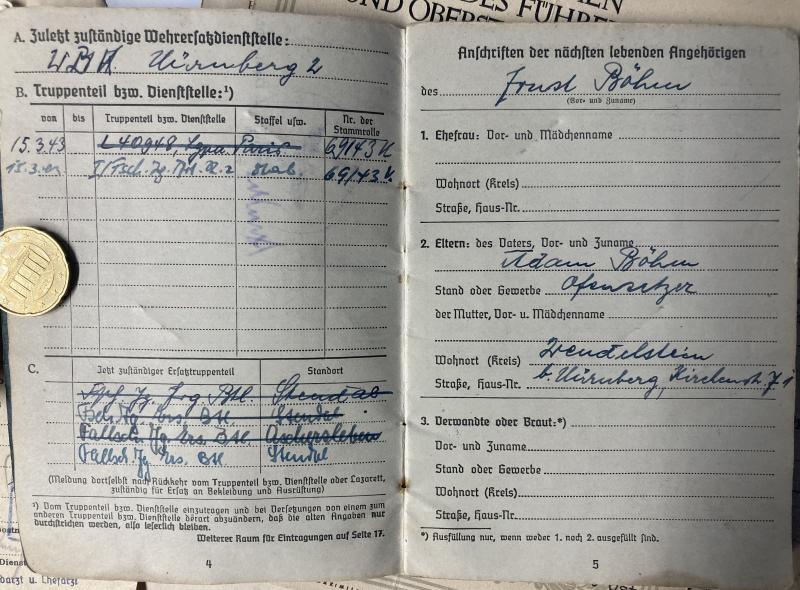 EN
DES FÜHRE
UND OBERST
A. Zuletzt zuständige Wehrersatzdienststelle:
WBK Nürnberg 2
B. Truppenteil bzw. Dienststelle:¹)
von bis Truppenteil bzw. Dienststelle Staffel usw. Nr. der Stammrolle
15.3.43 L 40948, Lgpa Paris 69/43 K
15.3. I/Fsch. Jg. Rgt. 2 Stab. 69/43 K.
C. Jetzt zuständiger Ersatztruppenteil Standort
Jg. Btl. Stendal
Ers. Btl. Stendal
Fallsch. Jg. Ers. Btl. Aschersleben
Fallsch. Jg. Ers. Btl. Stendal
(Meldung dortselbst nach Rückkehr vom Truppenteil bzw. Dienststelle oder Lazarett,
zuständig für Ersatz an Bekleidung und Ausrüstung)
¹) Vom Truppenteil bzw. Dienststelle einzutragen und bei Versetzungen von einem zum
anderen Truppenteil bzw. Dienststelle derart abzuändern, daß die alten Angaben nur
durchstrichen werden, also leserlich bleiben.
Weiterer Raum für Eintragungen auf Seite 17.
4
Anschriften der nächsten lebenden Angehörigen
des Ernst Böhm
(Vor- und Zuname)
1. Ehefrau: Vor- und Mädchenname
Wohnort (Kreis)
Straße, Haus-Nr.
2. Eltern: des Vaters, Vor- und Zuname
Adam Böhm
Stand oder Gewerbe Ofensetzer
der Mutter, Vor- u. Mädchenname
Wohnort (Kreis) Wendelstein
Straße, Haus-Nr. b. Nürnberg, Kirchenstr.
3. Verwandte oder Braut:*)
Vor- und Zuname
Stand oder Gewerbe
Wohnort (Kreis)
Straße, Haus-Nr.
*) Ausfüllung nur, wenn weder 1. noch 2. ausgefüllt sind.
5
Dienst
darzt u. Chefarzt